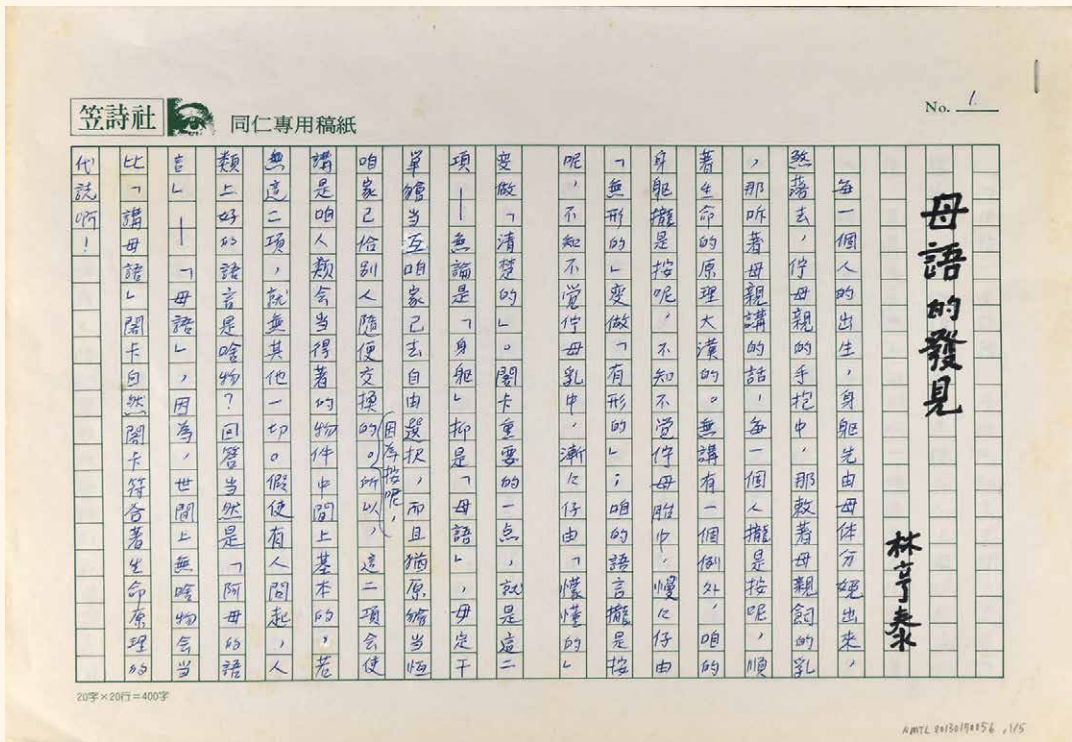 笠詩社 同仁專用稿紙
No. 1
母語的發見
林亨泰
每一個人的出生，身軀先由母体分娩出來，
煞落去，佇母親的手抱中，那欶著母親飼的乳
，那听著母親講的話，每一個人攏是按呢，順
著生命的原理大漢的。無講有一個例外，咱的
身軀攏是按呢，不知不覚佇母胎中，慢々仔由
「無形的」变做「有形的」；咱的語言攏是按
呢，不知不覚佇母乳中，漸々仔由「懞懂的」
变做「清楚的」。閣卡重要的一点，就是這二
項——無論是「身軀」抑是「母語」，毋定干
單𣍐当互咱家己去自由選択，而且猶原𣍐当恆
咱家己佮別人隨便交換的。所以，這二項会使
因為按呢，
講是咱人類会当得著的物件中間上基本的，若
無這二項，就無其他一切。假使有人問起，人
類上好的語言是啥物？回答当然是「阿母的語
言」——「母語」，因為，世間上無啥物会当
比「講母語」閣卡自然閣卡符合著生命原理的
代誌啊！
20字×20行=400字
NMTL 20130190056, 1/5